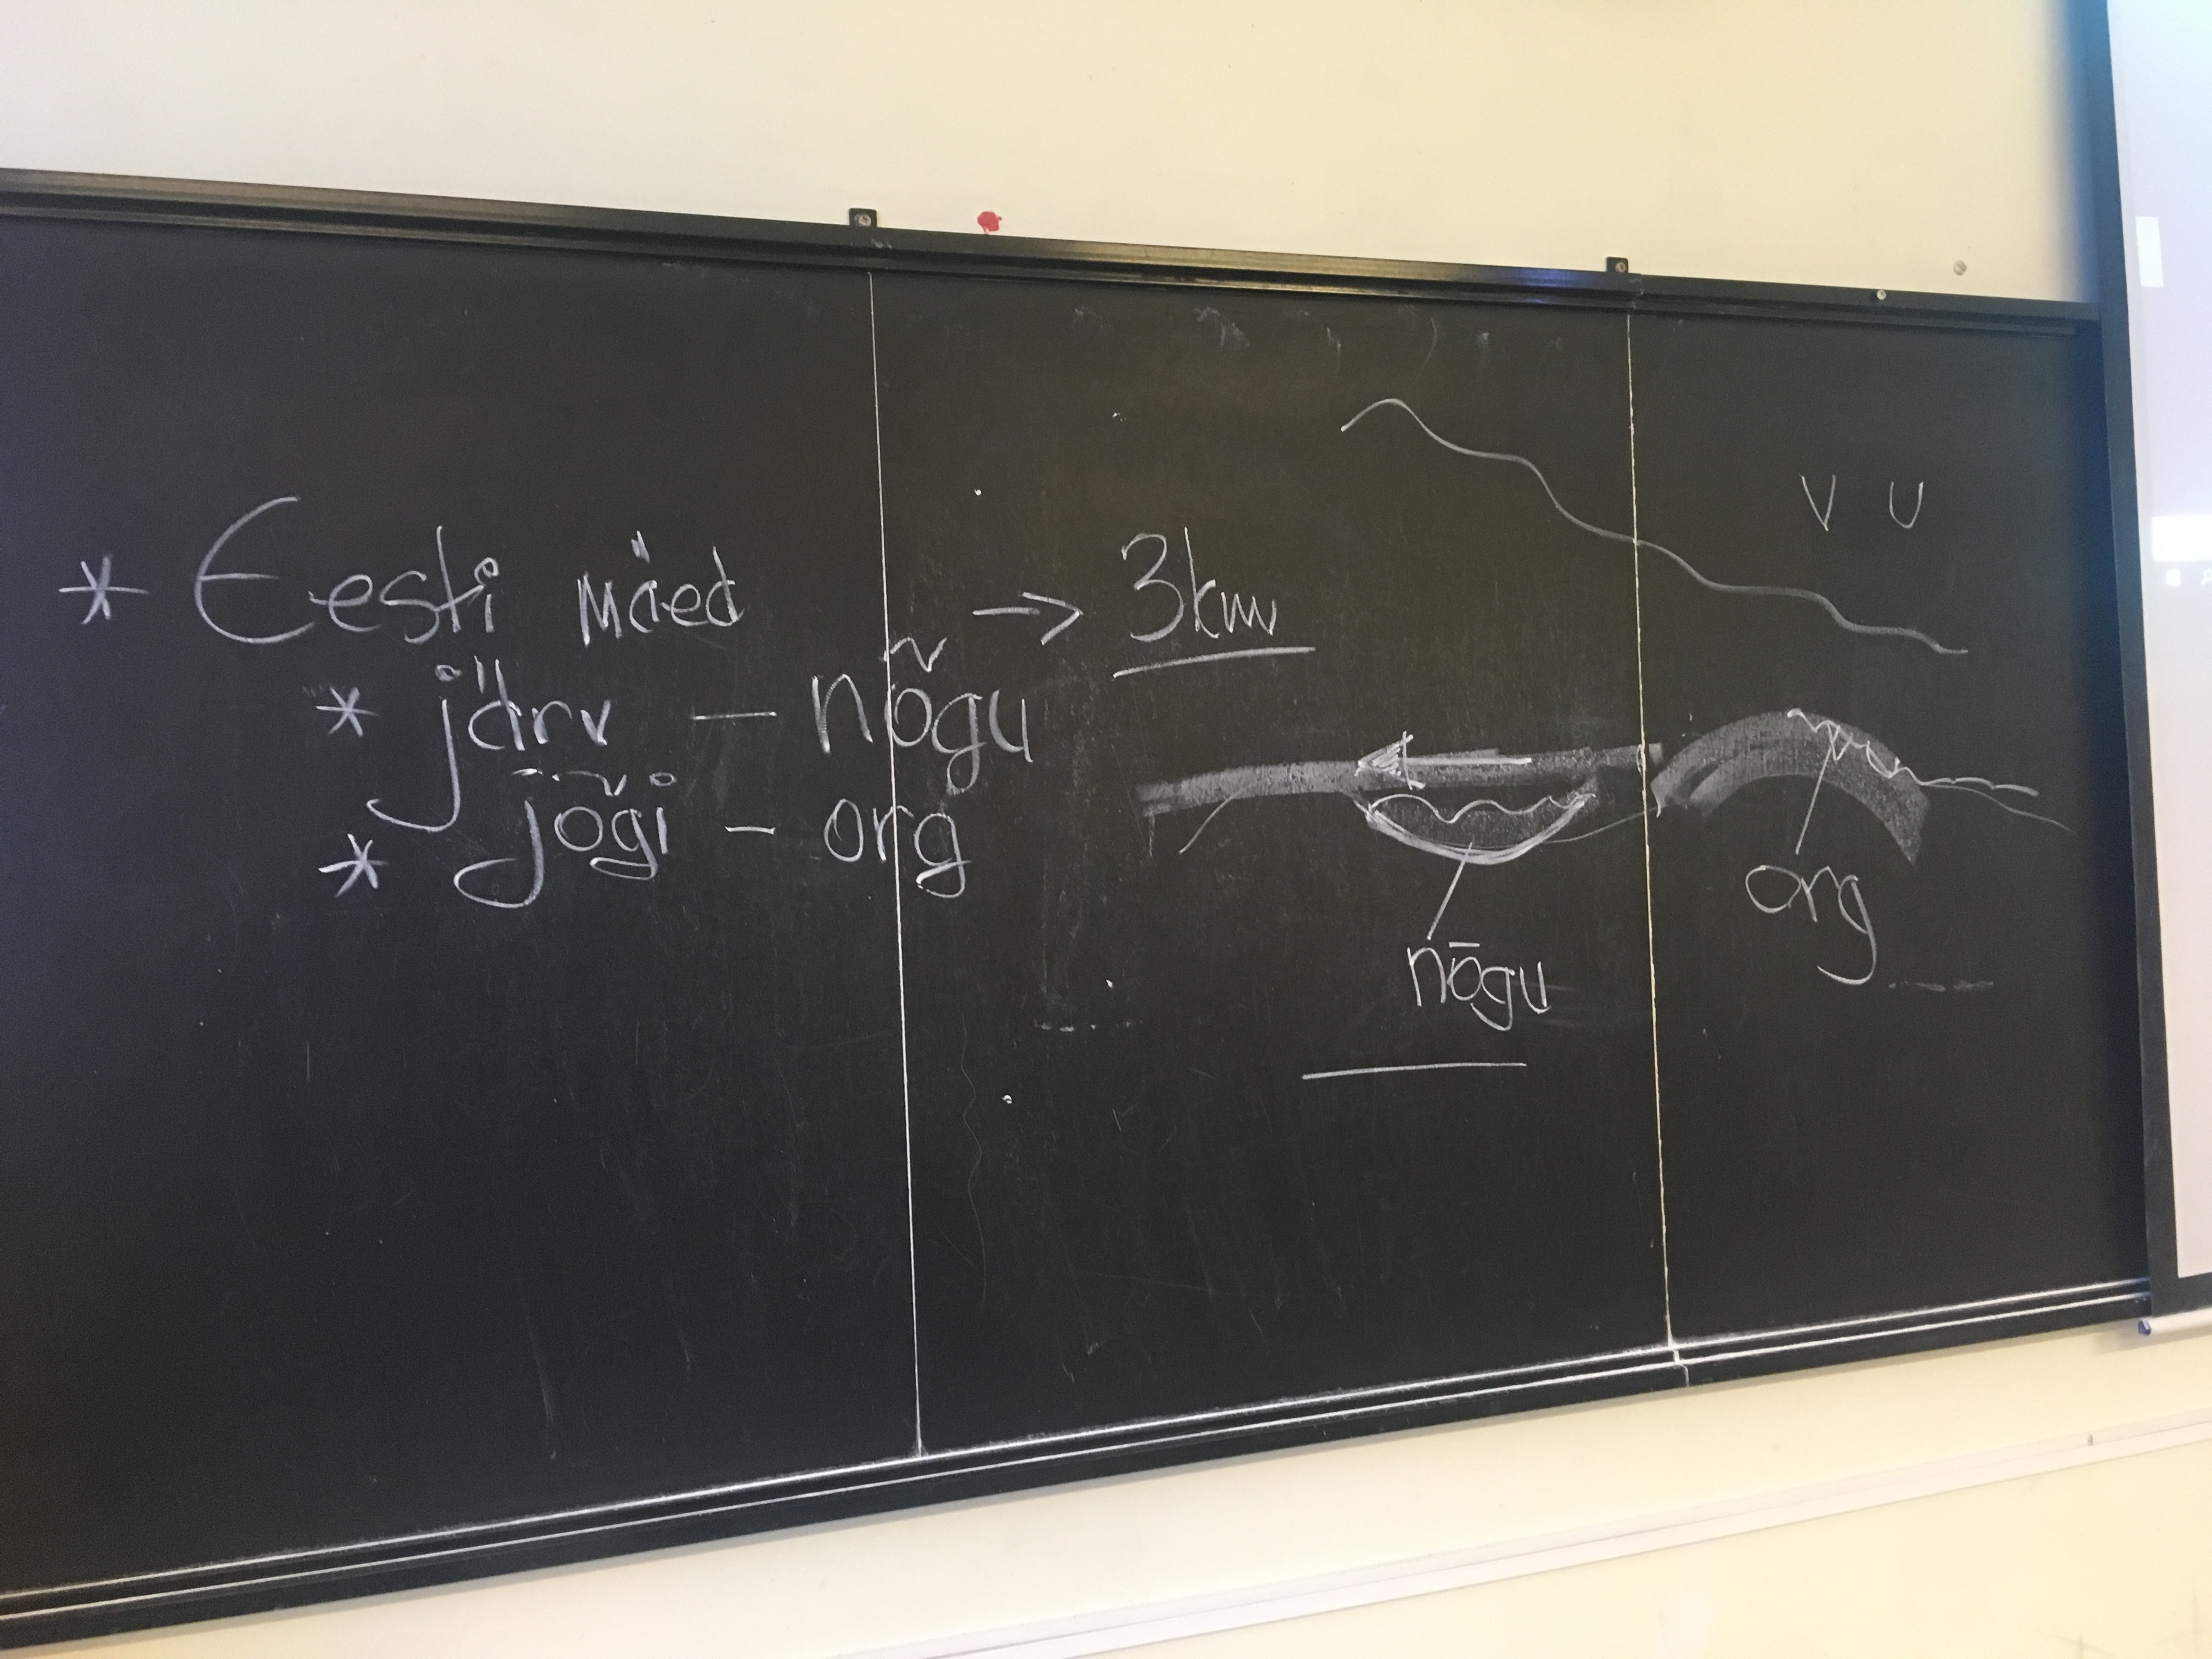 * Eesti mäed -> 3km
* järv - nõgu
* jõgi - org
V U
nõgu
org